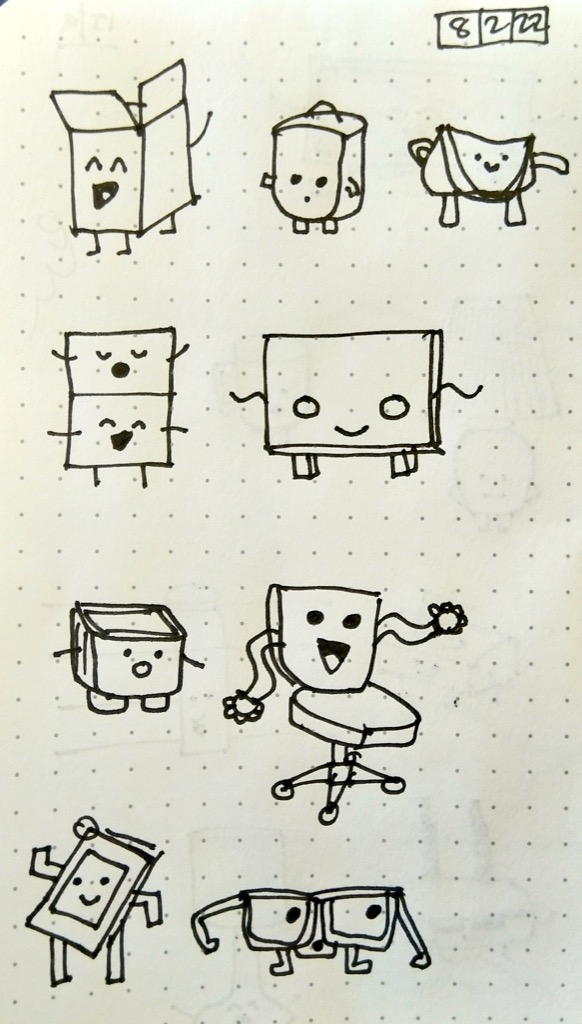 8 2 22